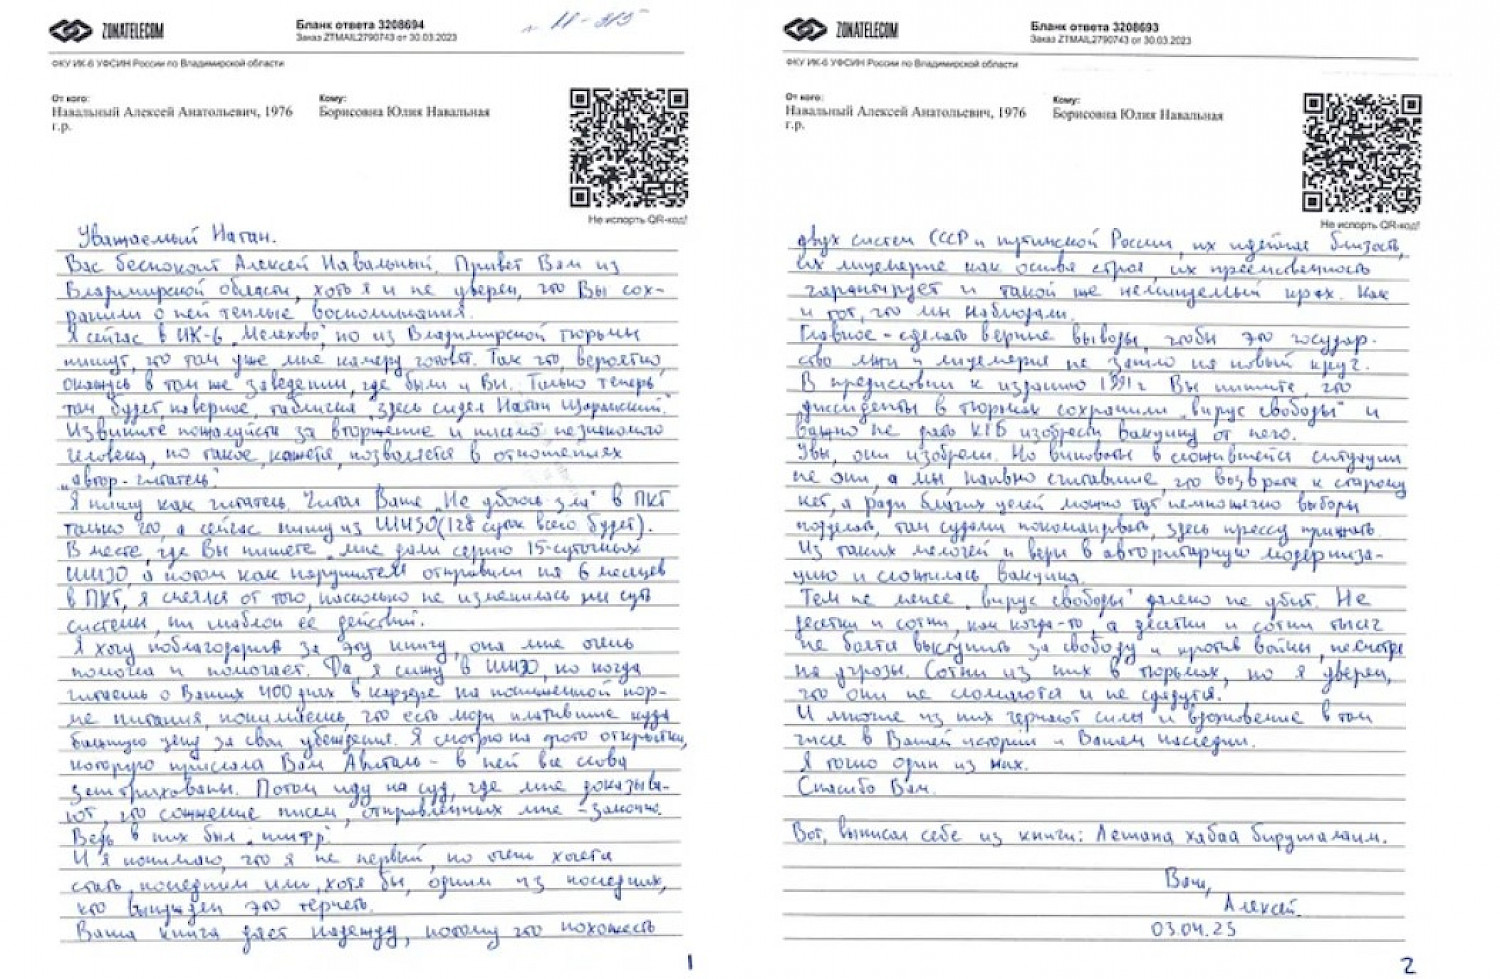 ZONATELECOM
Бланк ответа 3208694
Заказ ZTMAIL2790743 от 30.03.2023
ФКУ ИК-6 УФСИН России по Владимирской области
От кого:
Навальный Алексей Анатольевич, 1976
г.р.
Кому:
Борисовна Юлия Навальная
Не испорть QR-код!
Уважаемый Натан.
Вас беспокоит Алексей Навальный. Привет Вам из
Владимирской области, хоть я и не уверен, что Вы сох-
ранили о ней теплые воспоминания.
Я сейчас в ИК-6 „Мелехово", но из Владимирской тюрьмы
пишут, что там уже мне камеру готовят. Так что, вероятно
окажусь в том же заведении, где были и Вы. Только теперь
там будет, наверное, табличка „здесь сидел Натан Щаранский."
Извините пожалуйста за вторжение и письмо незнакомого
человека, но такое, кажется, позволяется в отношениях
„автор-читатель".
Я пишу как читатель. Читал Ваше „Не убоюсь зла" в ПКТ
только что, а сейчас пишу из ШИЗО (128 суток всего будет).
В месте, где Вы пишете „мне дали серию 15-суточных
ШИЗО, а потом как нарушителя отправили на 6 месяцев
в ПКТ", я смеялся от того, насколько не изменилась ни суть
системы, ни шаблон её действий.
Я хочу поблагодарить за эту книгу, она мне очень
помогла и помогает. Да, я сижу в ШИЗО, но когда
читаешь о Ваших 400 днях в карцере на пониженной нор-
ме питания, понимаешь, что есть люди платившие куда
большую цену за свои убеждения. Я смотрю на фото открытки,
которую прислала Вам Авиталь - в ней все слова
заштрихованы. Потом иду на суд, где мне доказыва-
ют, что сожжение писем, отправленных мне - законно.
Ведь в них был „шифр".
И я понимаю, что я не первый, но очень хочется
стать последним или, хотя бы, одним из последних,
кто вынужден это терпеть.
Ваша книга дает надежду, потому что похожесть
1
ZONATELECOM
Бланк ответа 3208693
Заказ ZTMAIL2790743 от 30.03.2023
ФКУ ИК-6 УФСИН России по Владимирской области
От кого:
Навальный Алексей Анатольевич, 1976
г.р.
Кому:
Борисовна Юлия Навальная
Не испорть QR-код!
двух систем СССР и путинской России, их идейная близость,
их лицемерие как основа строя, их преемственность
гарантирует и такой же неминуемый крах. Как
и тот, что мы наблюдали.
Главное - сделать верные выводы, чтобы это государ-
ство лжи и лицемерия не зашло на новый круг.
В предисловии к изданию 1991г Вы пишите, что
диссиденты в тюрьмах сохранили „вирус свободы" и
важно не дать КГБ изобрести вакцину от него.
Увы, они изобрели. Но виноваты в сложившейся ситуации
не они, а мы наивно считавшие, что возврата к старому
нет, а ради благих целей можно тут немножечко выборы
подделать, там судами покомандовать, здесь прессу прижать.
Из таких мелочей и веры в авторитарную модерниза-
цию и сложилась вакцина.
Тем не менее „вирус свободы" далеко не убит. Не
десятки и сотни, как когда-то, а десятки и сотни тысяч
не боятся выступить за свободу и против войны, несмотря
на угрозы. Сотни из них в тюрьмах, но я уверен,
что они не сломаются и не сдадутся.
И многие из них черпают силы и вдохновение в том
числе в Вашей истории и Вашем наследии.
Я точно один из них.
Спасибо Вам.
Вот, выписал себе из книги: Лешана хабаа бирушалаим.
Ваш,
Алексей.
03.04.23
2